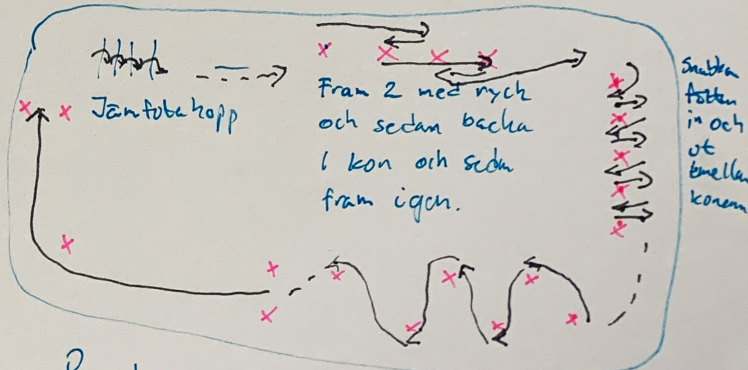 Jämfota hopp
Fram 2 med rych
och sedan backa
1 kon och sedn
fram igen.
Snabba
fötter
in och
ut
emellan
konerna